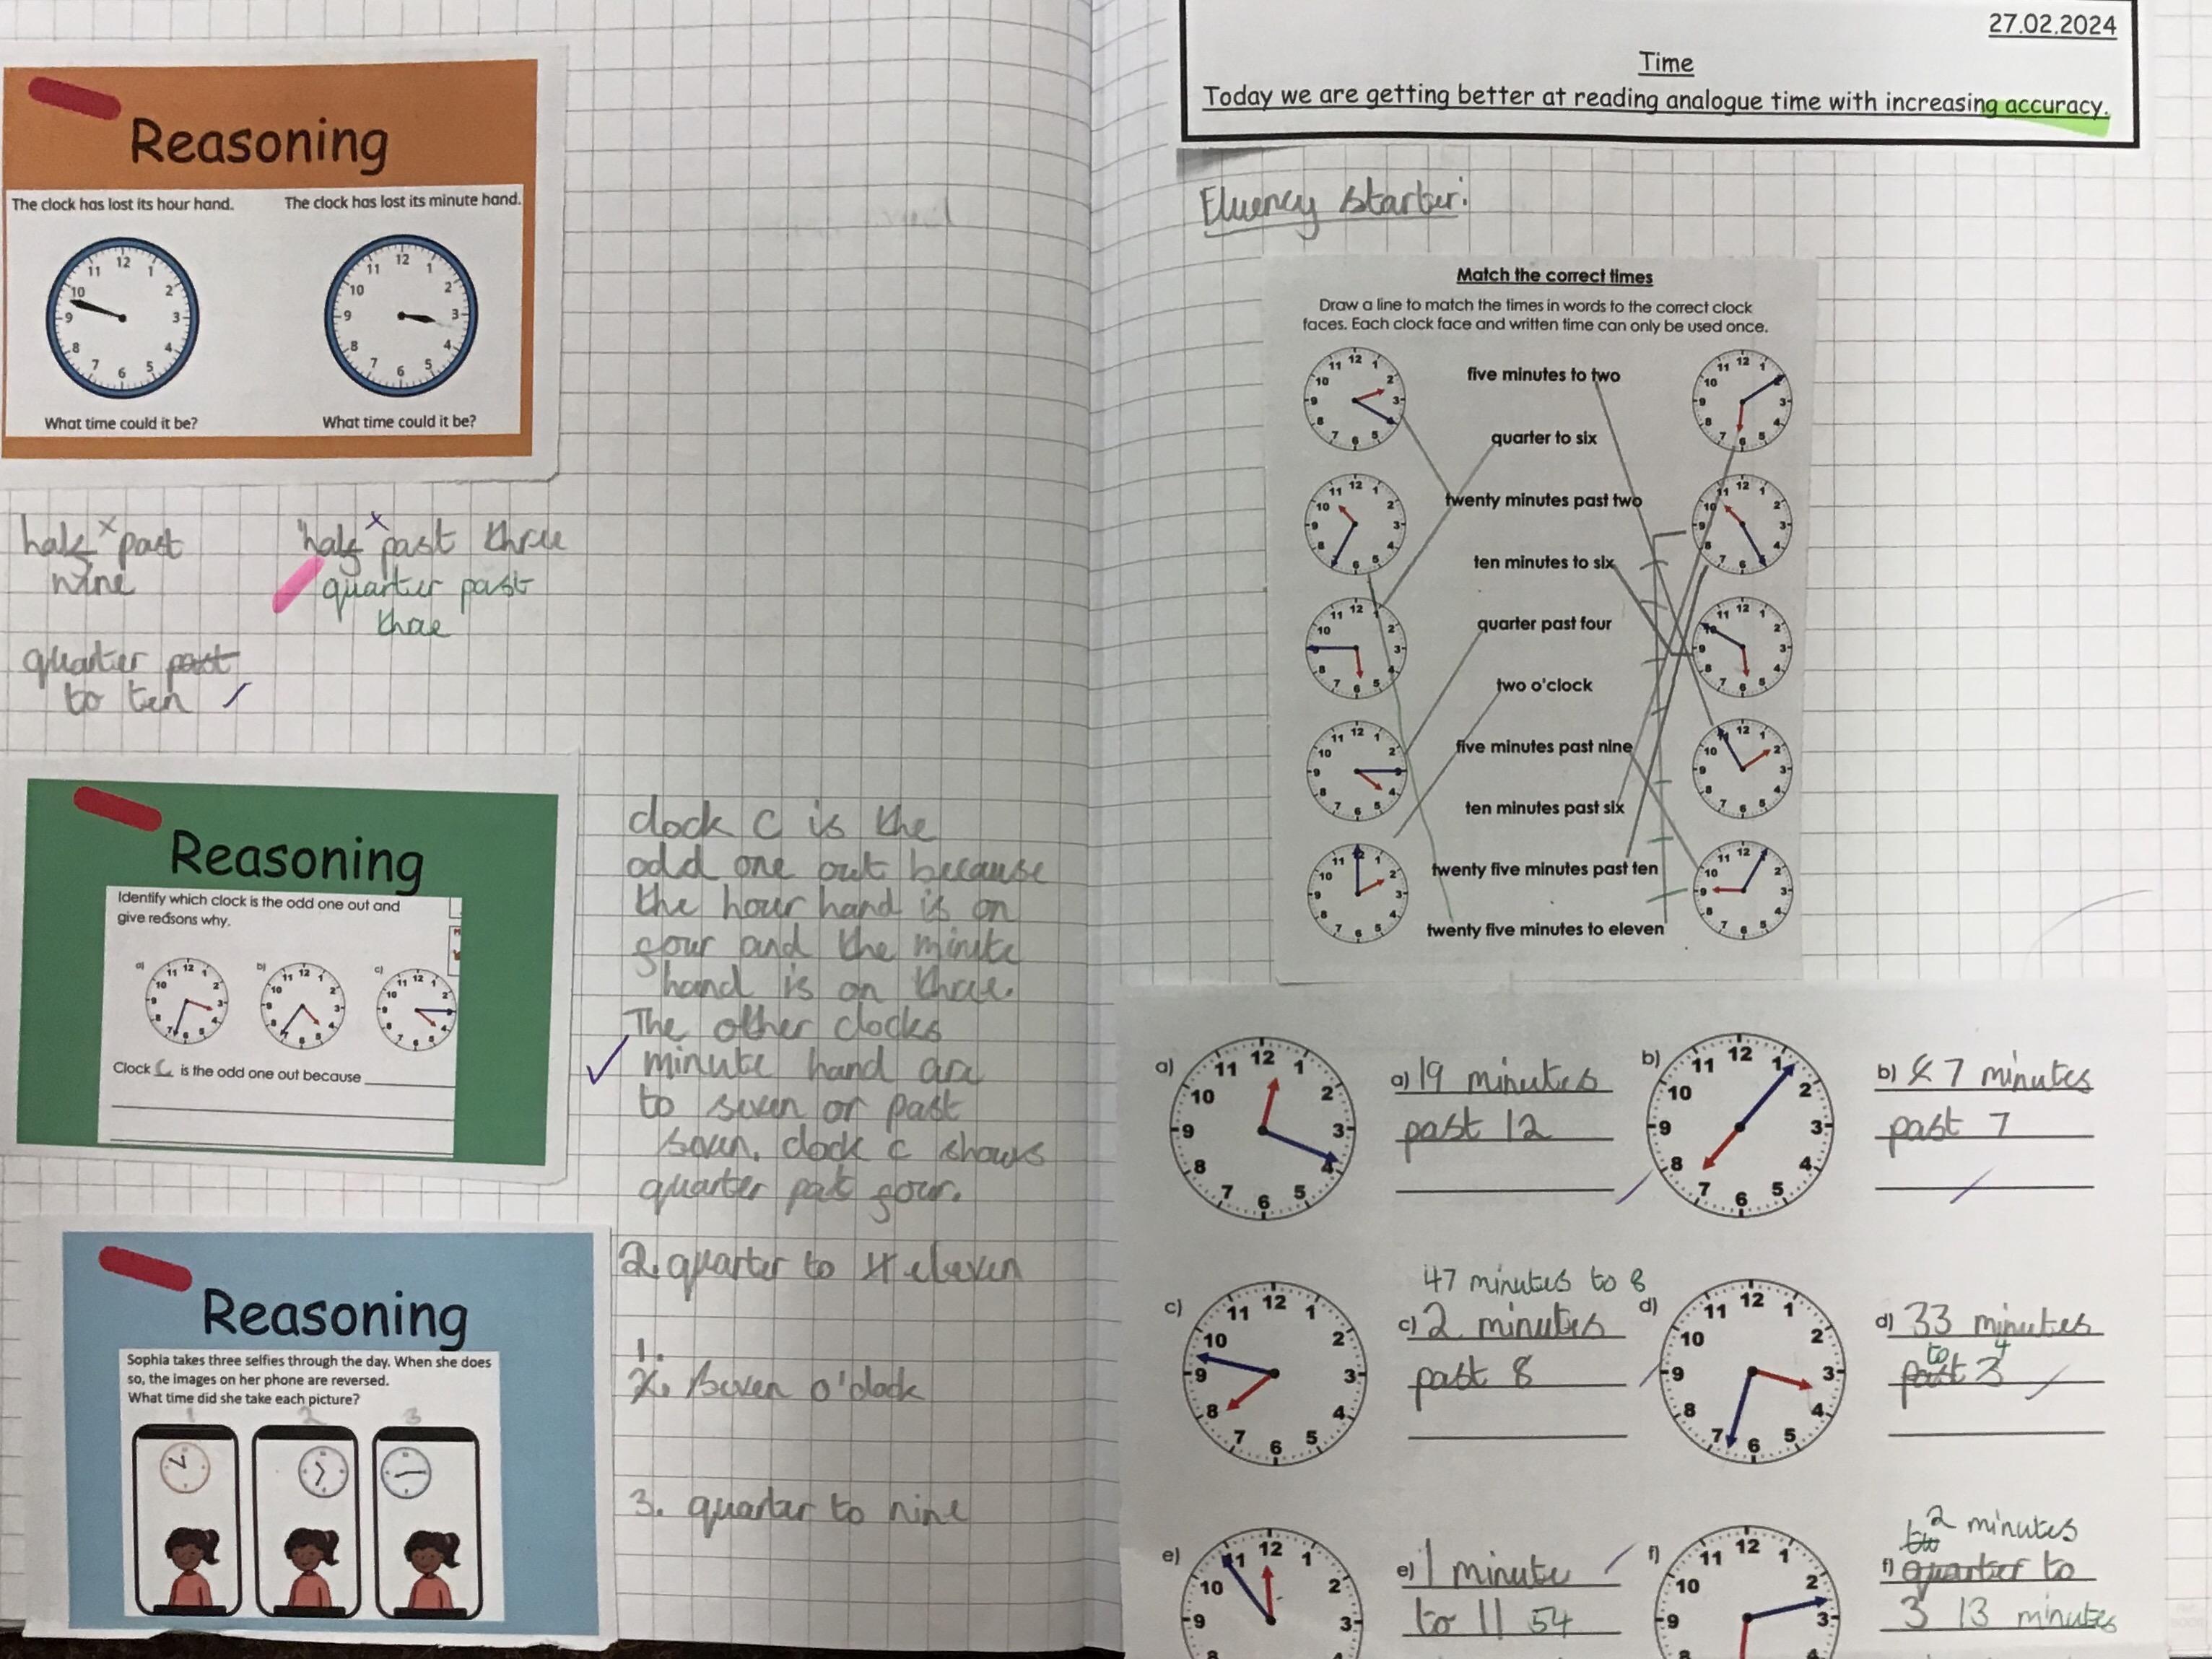 Reasoning
The clock has lost its hour hand.
The clock has lost its minute hand.
12
11 1
10 2
9 3
8 4
7 5
6
12
11 1
10 2
9 3
8 4
7 5
6
What time could it be?
What time could it be?
half past
nine
half past three
quarter past
three
quarter past
to ten
Reasoning
Identify which clock is the odd one out and
give reasons why.
a)
b)
c)
Clock C is the odd one out because
clock c is the
odd one out because
the hour hand is on
four and the minute
hand is on three.
The other clocks
minute hand are
to seven or past
seven. clock c shows
quarter pat four.
Reasoning
Sophia takes three selfies through the day. When she does
so, the images on her phone are reversed.
What time did she take each picture?
1 2 3
2. quarter to eleven
1.
seven o'clock
3. quarter to nine
27.02.2024
Time
Today we are getting better at reading analogue time with increasing accuracy.
Fluency starter:
Match the correct times
Draw a line to match the times in words to the correct clock
faces. Each clock face and written time can only be used once.
five minutes to two
quarter to six
twenty minutes past two
ten minutes to six
quarter past four
two o'clock
five minutes past nine
ten minutes past six
twenty five minutes past ten
twenty five minutes to eleven
a)
12
11 1
10 2
9 3
8 4
7 5
6
a) 19 minutes
past 12
b)
12
11 1
10 2
9 3
8 4
7 5
6
b) 7 minutes
past 7
c)
12
11 1
10 2
9 3
8 4
7 5
6
47 minutes to 8
c) 2 minutes
past 8
d)
12
11 1
10 2
9 3
8 4
7 5
6
d) 33 minutes
to 4
past 3
e)
12
11 1
10 2
9 3
8 4
e) 1 minute
to 11 54
f)
12
11 1
10 2
9 3
8 4
2 minutes
f) quarter to
3 13 minutes